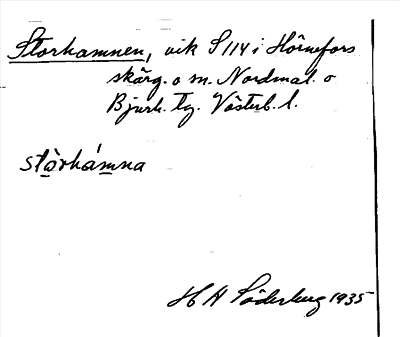 Storhamnen, vik S 114 i Hörnefors
skärg. o sn. Nordmal. o
Bjurh. tg. Västerb. l.
stòrhámna
H N Söderberg 1935